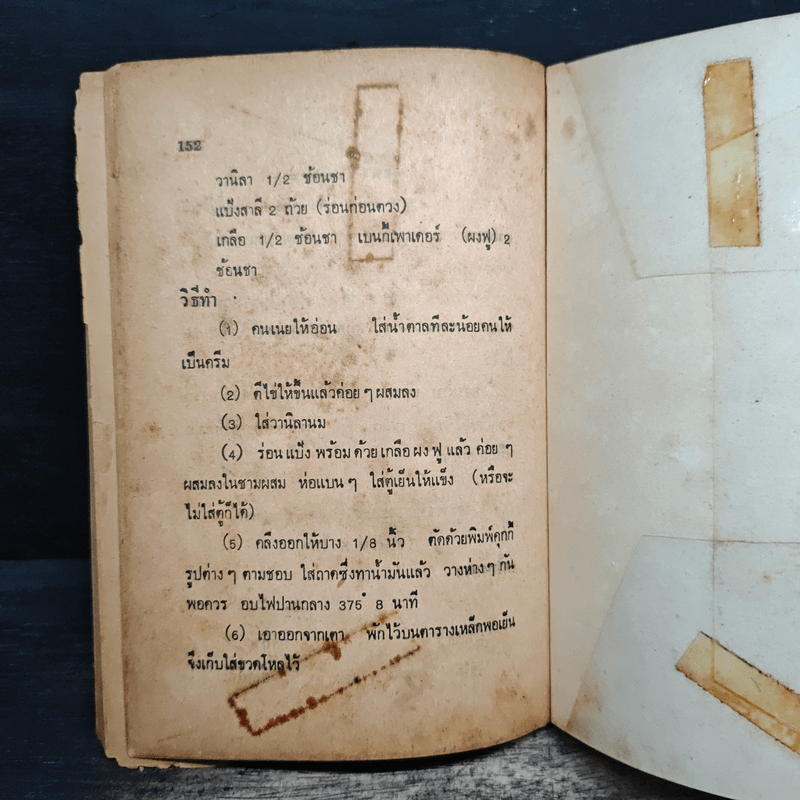 152
วานิลา 1/2 ช้อนชา
แป้งสาลี 2 ถ้วย (ร่อนก่อนตวง)
เกลือ 1/2 ช้อนชา เบนกิ้เพาเดอร์ (ผงฟู) 2
ช้อนชา
วิธีทำ
(1) คนเนยให้อ่อน ใส่น้ำตาลทีละน้อยคนให้
เป็นครีม
(2) ตีไข่ให้ขึ้นแล้วค่อย ๆ ผสมลง
(3) ใส่วานิลานม
(4) ร่อนแป้ง พร้อมด้วย เกลือ ผงฟู แล้ว ค่อย ๆ
ผสมลงในชามผสม ห่อแบน ๆ ใส่ตู้เย็นให้แข็ง (หรือจะ
ไม่ใส่ตู้ก็ได้)
(5) คลึงออกให้บาง 1/8 นิ้ว ตัดด้วยพิมพ์คุกกี้
รูปต่าง ๆ ตามชอบ ใส่ถาดซึ่งทาน้ำมันแล้ว วางห่าง ๆ กัน
พอควร อบไฟปานกลาง 375° 8 นาที
(6) เอาออกจากเตา พักไว้บนตารางเหล็กพอเย็น
จึงเก็บใส่ขวดโหลไว้